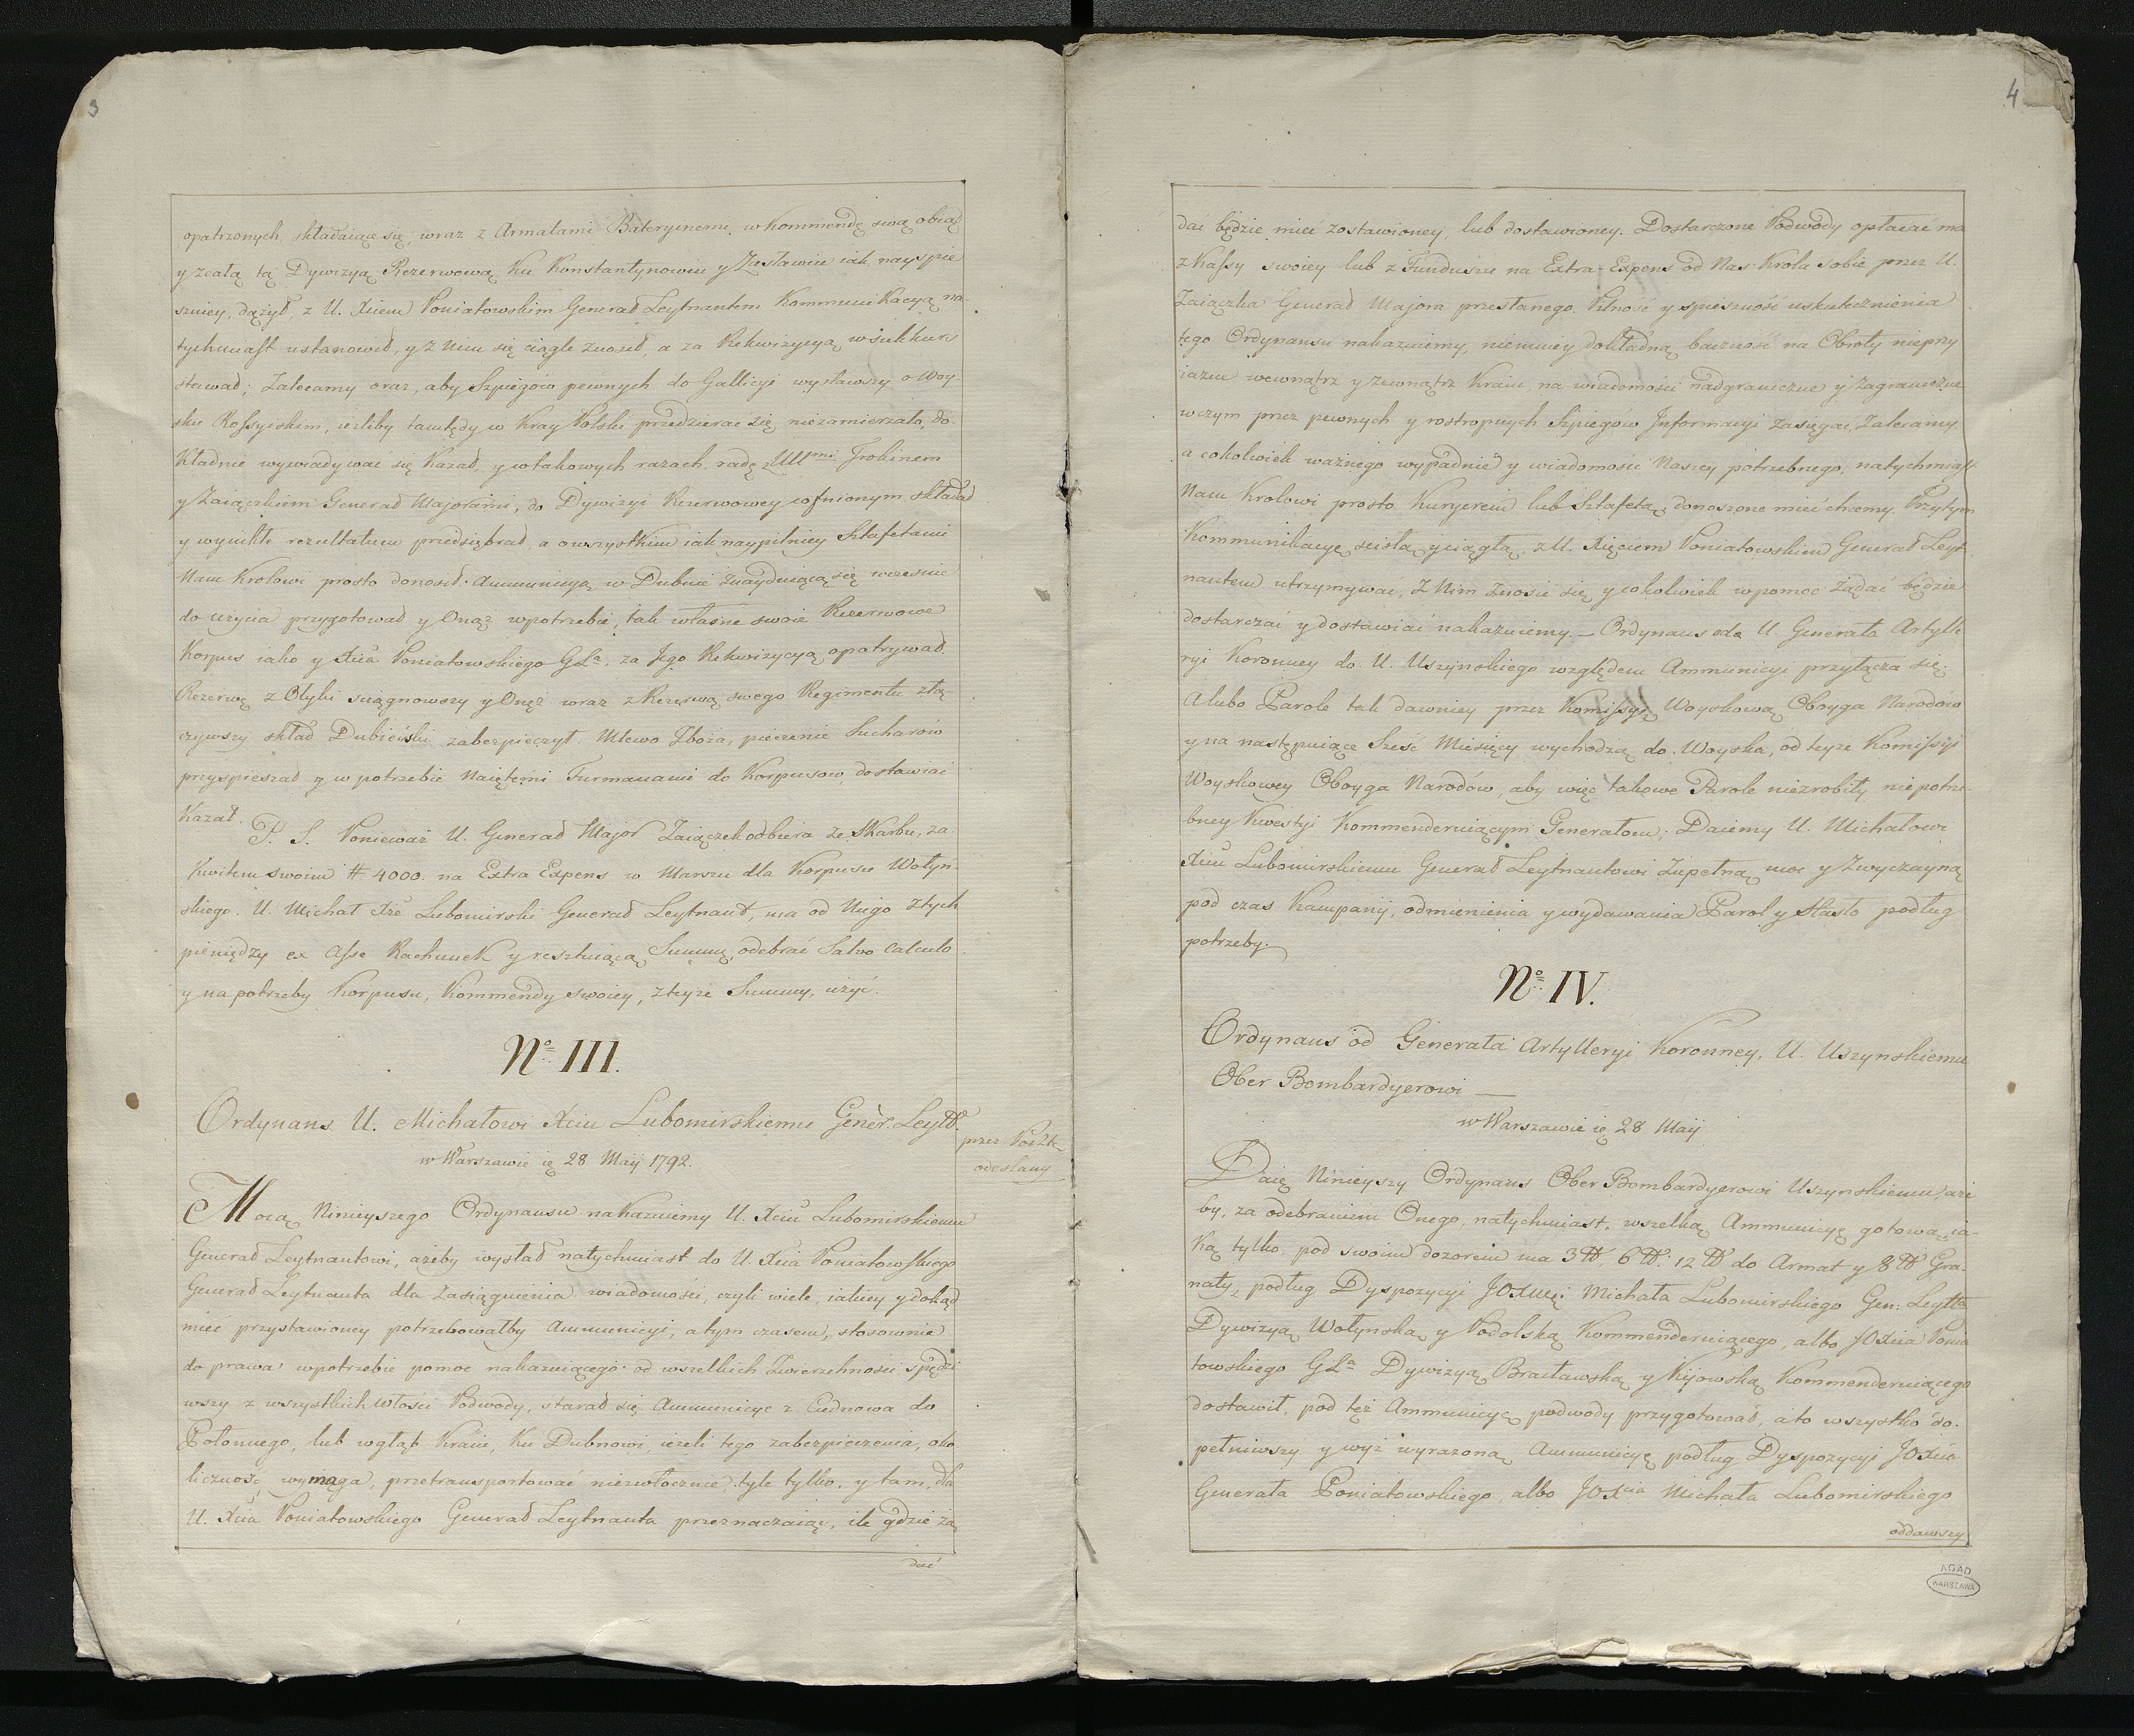 3
opatrzonych, składaiące się, wraz z Armatami Bateryinemi, w Kommendę swą obiął
y z całą tą Dywizyą Rezerwową Ku Konstantynowu y Zasławiu iak nayspie
szniey, dążył, z U. Xciem Poniatowskim Generał Leytnantem Kommunikacyą na-
tychmiast ustanowił, y z Nim się ciągle znosił, a za Rekwizycyą w sukkurs
stawał; Zalecamy oraz, aby Szpiegów pewnych do Gallicyi wysławszy o Woy-
sku Rossyiskim, ieżliby tamtędy w Kray Polski przedzierac się niezamierzało, do-
kładnie wywiadywać się Kazał, y w takowych razach, radę z UU<sup>mi</sup> Trokinem
y Zaiączkiem Generał Majorami, do Dywizyi Rezerwowey cofnionym składał
y wynikłe rezultatum przedsiębrał, a o wszystkim iak naypilniey Sztafetami
Nam Krolowi prosto donosił. Ammunicyą w Dubnie znayduiącą się wczesnie
do użycia przygotował y Onąż w potrzebie, tak własne swoie Rezerwowe
Korpus iako y Xcia Poniatowskiego GLa, za Jego Rekwizycyą opatrywał.
Rezerwę z Ołyki sciągnowszy y Onęż wraz z Rezerwą swego Regimentu złą-
czywszy skład Dubieński zabezpieczył. Mlewo Zboża, pieczenie Sucharów
przyspieszał y w potrzebie Naiętemi Furmanami do Korpusow dostawiać
Kazał.
P. S. Ponieważ U. Generał Major Zaiączek odbiera ze Skarbu, za
Kwitem swoim # 4000. na Extra Expens w Marszu dla Korpusu Wołyn-
skiego. U. Michał Xże Lubomirski Generał Leytnant, ma od Niego z tych
pieniędzy ex Asse Rachunek y resztuiącą Summę, odebrać Salvo calculo
y na potrzeby Korpusu, Kommendy swoiey, z teyże Summy, użyć.
No III.
Ordynans U. Michałowi Xciu Lubomirskiemu Gener: Leytt.
przez Poszt.
odesłany
w Warszawie ię 28 Maij 1792.
Mocą Ninieyszego Ordynansu nakazuiemy U. Xciu Lubomirskiemu
Generał Leytnantowi, ażeby wysłał natychmiast do U. Xcia Poniatowskiego
Generał Leytnanta dla zasiągnienia wiadomości, czyli wiele, iakiey y dokąd
mieć przystawioney potrzebowałby Ammunicyi, a tym czasem, stosownie
do prawa w potrzebie pomoc nakazuiącego od wszelkich Zwierzchności spędzi
wszy z wszystkich Włości Podwody, starał się Ammunicyę z Cudnowa do
Połonnego, lub w głąb Kraiu, Ku Dubnowi, ieżeli tego zabezpieczenia, oko
liczność wymaga, przetransportować niezwłocznie, tyle tylko, y tam, dla
U. Xcia Poniatowskiego Generał Leytnanta przeznaczaiąc, ile gdzie żą
dać
4
dać będzie mieć zostawioney, lub dostawioney. Dostarczone Podwody opłacać ma
z Kassy swoiey lub z Funduszu na Extra-Expens od Nas Krola sobie przez U.
Zaiączka Generał Majora przesłanego. Pilność y spieszność uskutecznienia
tego Ordynansu nakazuiemy, niemniey dokładną baczność na Obroty nieprzy
iazne wewnątrz y zewnątrz Kraiu, na wiadomości nadgraniczne y zagraniczne
w czym przez pewnych y rostropnych Szpiegów Jnformacyi zasięgać, Zalecamy.
a cokolwiek ważnego wypadnie y wiadomości Naszey potrzebnego, natychmiast
Nam Krolowi prosto Kuryerem lub Sztafetą donoszone mieć chcemy. Przytym
Kommunikacyę scisłą y ciągłą, z U. Xięciem Poniatowskim Generał Leyt-
nantem utrzymywać, z Nim znosić się y cokolwiek w pomoc żądać będzie
dostarczać y dostawiać nakazuiemy. — Ordynans ode U. Generała Artylle
ryi Koronney do U. Uszynskiego względem Ammunicyi przyłącza się.
Alubo Parole tak dawniey przez Komissyą Woyskową Oboyga Narodów
y na następuiące Sześć Miesięcy wychodzą do Woyska, od teyże Komissyi
Woyskowey Oboyga Narodów, aby więc takowe Parole niezrobiły niepotrze-
bney Kwestyi Kommenderuiącym Generałom; Daiemy U. Michałowi
Xciu Lubomirskiemu Generał Leytnantowi Zupełną moc y Zwyczayną
pod czas Kampanij, odmienienia y wydawania Parol y Hasło podług
potrzeby.
No IV.
Ordynans od Generała Artylleryi Koronney, U. Uszynskiemu
Ober Bombardyerowi —
w Warszawie ię 28 Maij
Daię Ninieyszy Ordynans Ober Bombardyerowi Uszynskiemu, aże
by, za odebraniem Onego, natychmiast, wszelką Ammunicyę gotową, ia-
Ką tylko, pod swoim dozorem ma 3 ℔, 6 ℔. 12 ℔ do Armat y 8 ℔ Gra-
naty, podług Dyspozycyi JOXcia Michała Lubomirskiego Gen: Leytta
Dywizyą Wołynską y Podolską Kommenderuiącego, albo JOXcia Ponia
towskiego GLa Dywizyą Bracławską y Kijowską Kommenderuiącego
dostawił, pod też Ammunicyę podwody przygotował, a to wszystko do-
pełniwszy y wyż wyrażoną Ammunicyę podług Dyspozycyi JOXcia
Generała Poniatowskiego, albo JOXcia Michała Lubomirskiego
oddawszy
AGAD
WARSZAWA